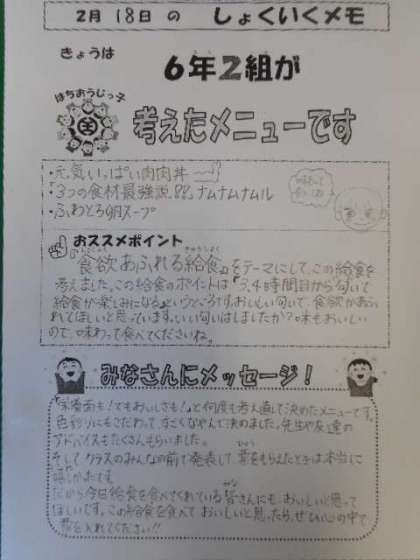 2月 18日 の しょくいくメモ
きょうは
6年2組が
はちおうじっ子
考えたメニューです
・元気いっぱい肉肉丼
・3つの食材最強説!?ナムナムナムル
・ふわとろ卵スープ
おススメポイント
『食欲あふれる給食』をテーマにして、この給食を
考えました。この給食のポイントは『3,4時間目から匂いで
給食が楽しみになる』というところです。おいしい匂いで、食欲があふ
れてほしいと思っています。いい匂いはしましたか?味もおいしい
ので、味わって食べてくださいね。
みなさんにメッセージ!
「栄養面も!でもおいしさも!」と何度も考え直して決めたメニューです。
色彩りにもこだわって、すごくなやんで決めました。先生や友達の
アドバイスもたくさんもらいました。
そして、クラスのみんなの前で発表して、票をもらえたときは本当に
嬉しかったです。
だから今日給食を食べてくれている皆さんにも、おいしいと思って
ほしいです。この給食を食べておいしいと思ったら、ぜひ心の中で
票を入れてください!!